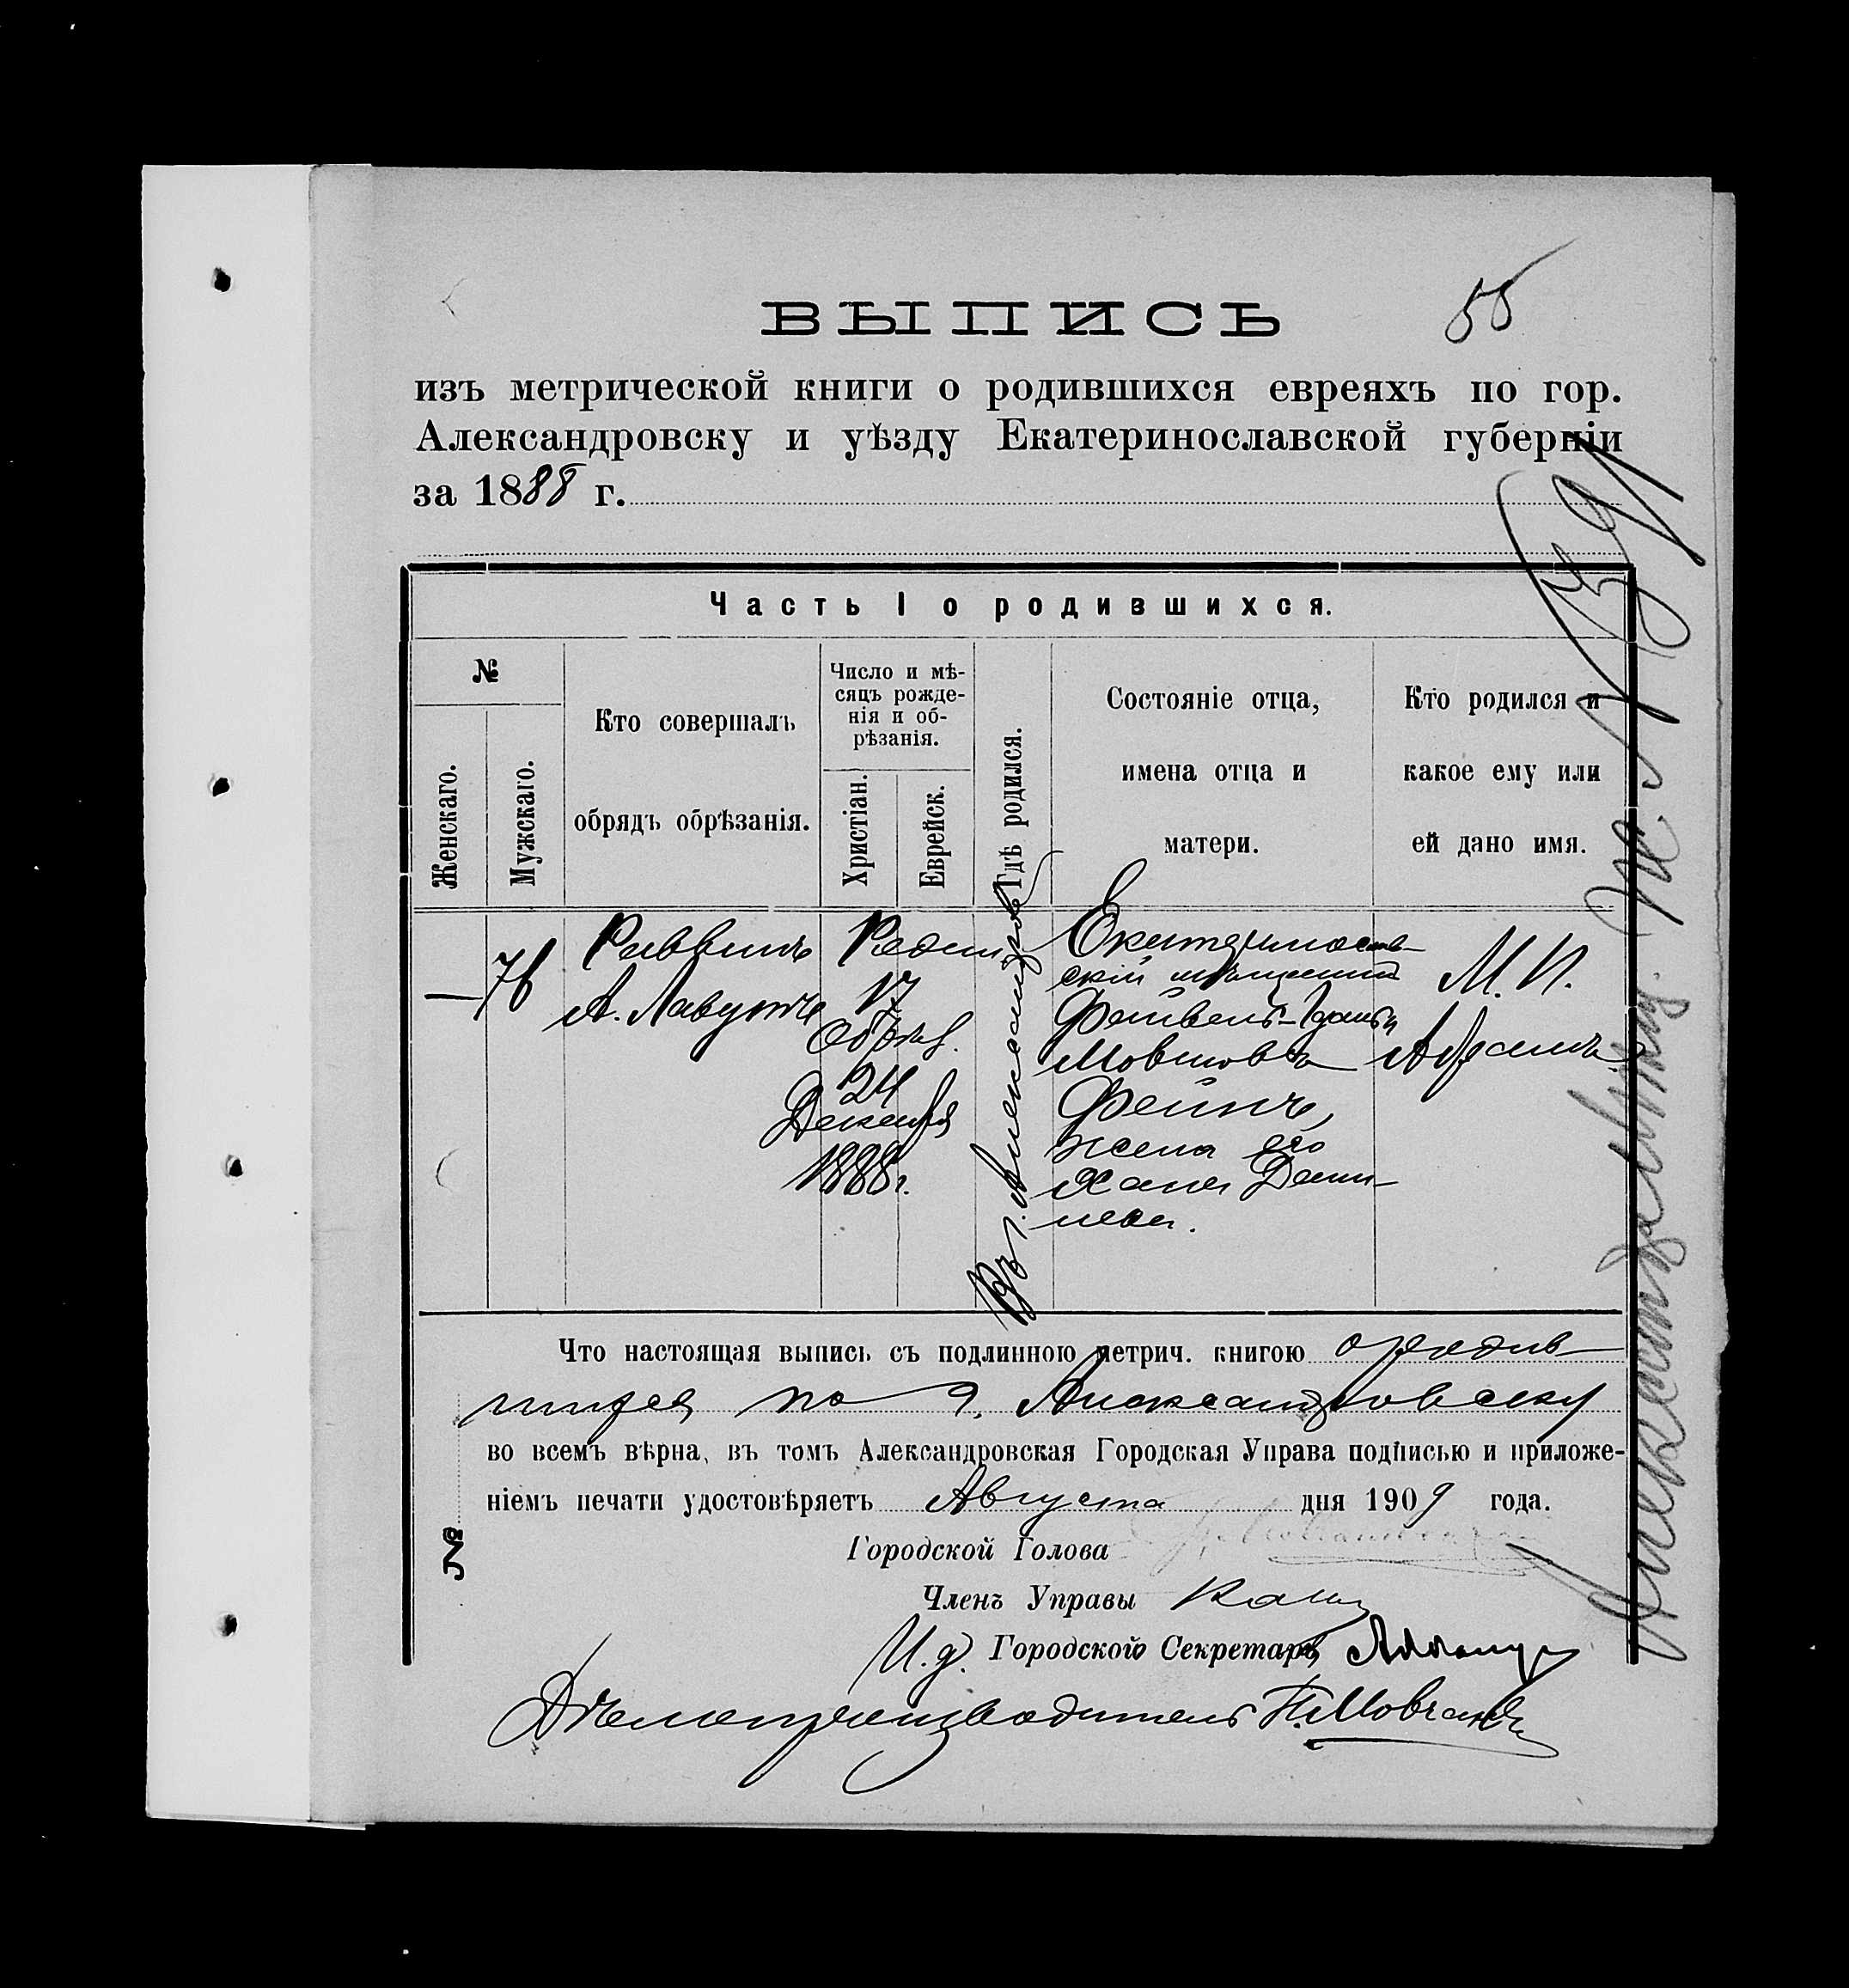 55
ВЫПИСЬ
изъ метрической книги о родившихся евреяхъ по гор.
Александровску и уѣзду Екатеринославской губерніи
за 1888 г.
Часть I о родившихся.
№
Женскаго.
Мужскаго.
Кто совершалъ
обрядъ обрѣзанія.
Число и мѣ-
сяцъ рожде-
нія и об-
рѣзанія.
Христіан.
Еврейск.
Гдѣ родился.
Состояніе отца,
имена отца и
матери.
Кто родился и
какое ему или
ей дано имя.
—
76
Раввинъ
А. Лавутъ
Родил
17
Обрѣз.
24
Декабря
1888 г.
Въ г. Александров
Екатринослав-
скій мѣщанинъ
Файвель-
Мовшовъ
Фейнъ,
жена его
Хана Дани-
лова.
М. П.
Абрамъ
Что настоящая выпись съ подлинною метрич. книгою о родив
шихся по г. Александровску
во всемъ вѣрна, въ томъ Александровская Городская Управа подписью и приложе-
ніемъ печати удостовѣряетъ Августа дня 1909 года.
№
Городской Голова
Членъ Управы
И. д. Городской Секретарь
Дѣлопроизводитель Н. Мовчан